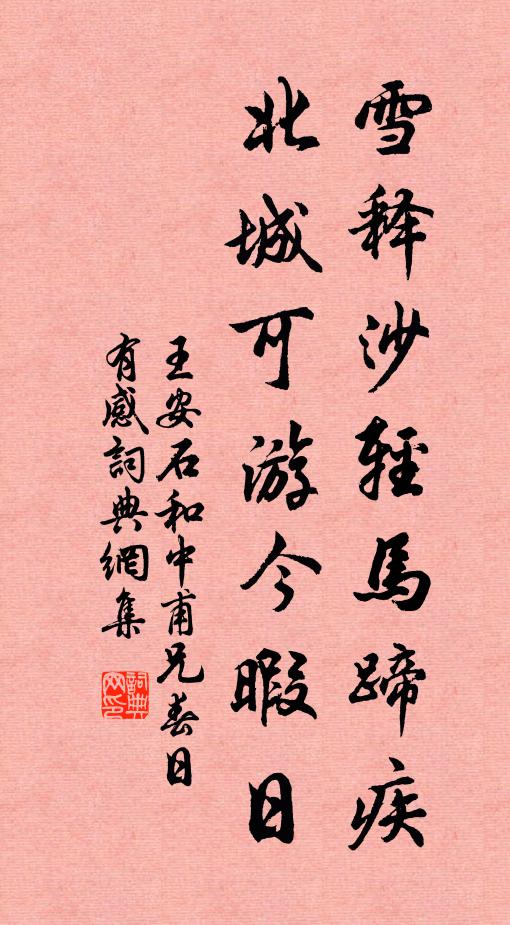 雪释沙輕馬蹄疾
北城可游今暇日
王安石和中甫兄春日
有感詞典網集
詞典网印